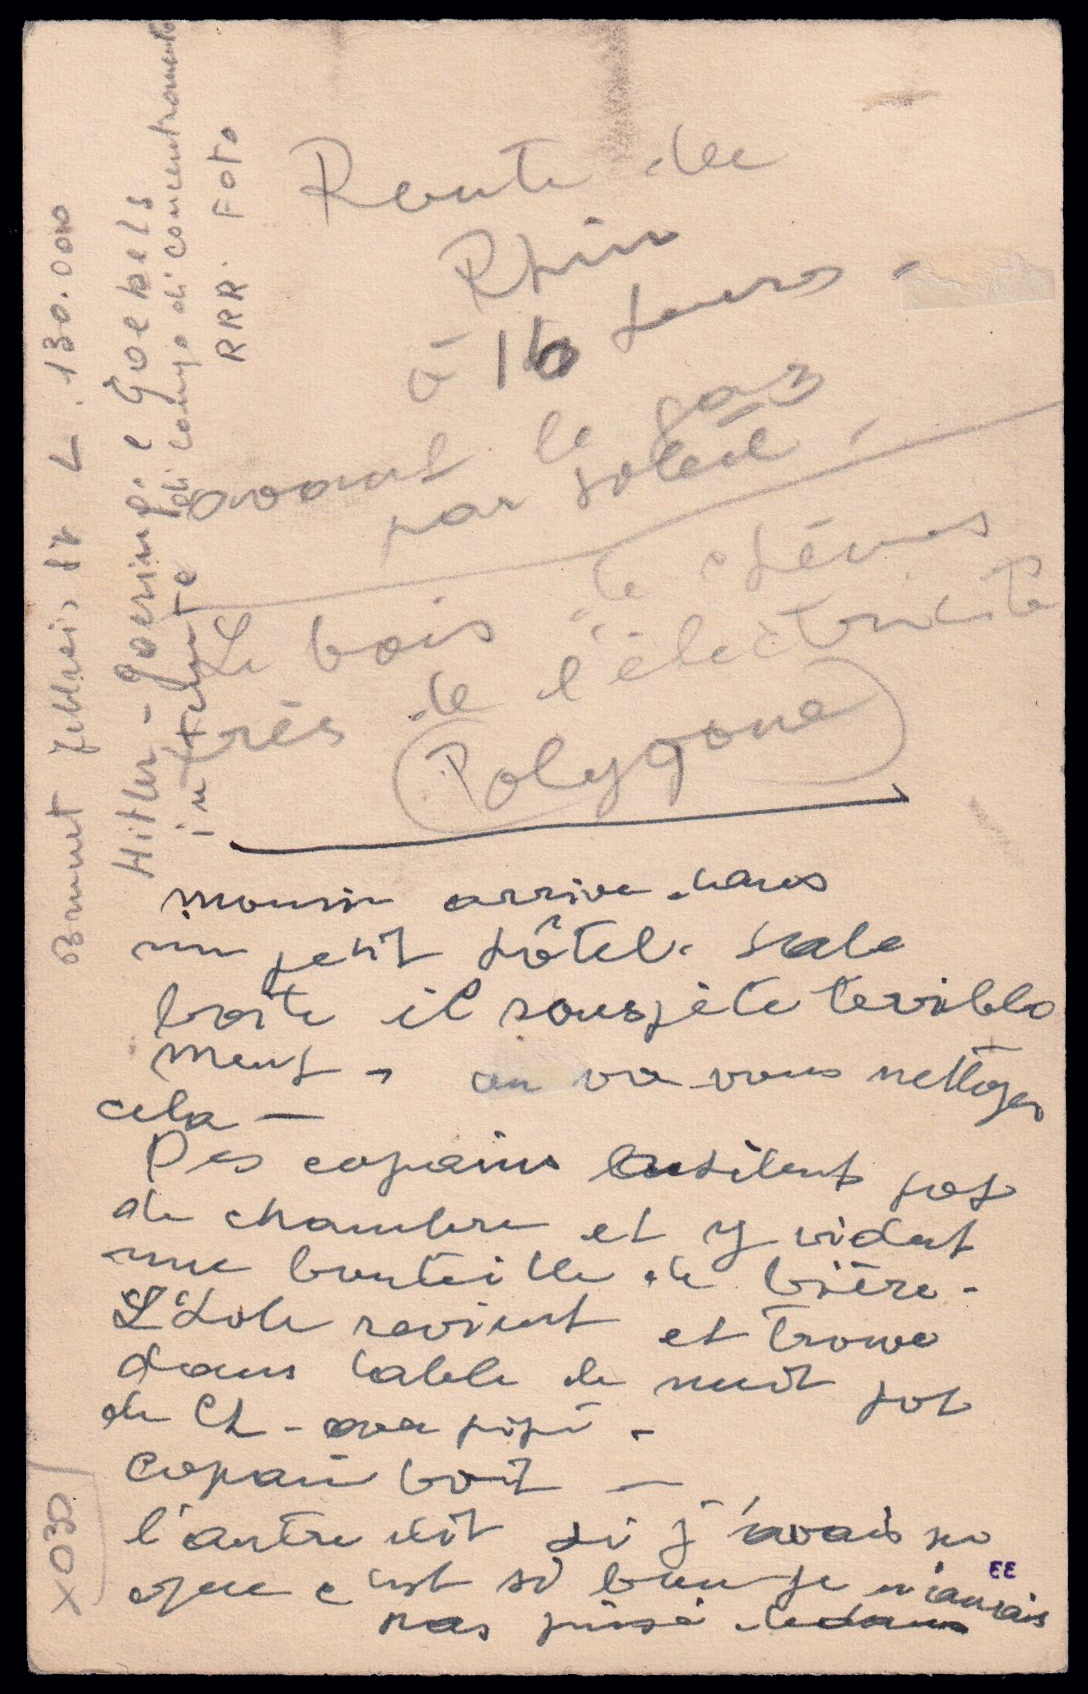 Route du
Rhin
à 16 heures -
avant le gaz
par soleil -
Le bois de chênes
près de l'électricité
Polygone
arrive dans
un petit hôtel. Sale
boite il rouspète terrible
ment - on va vous nettoyer
cela -
Des copains pot
de chambre et y vident
une bouteille de bière -
L'hôte revient et trouve
dans table de nuit pot
de Ch - avec pipi -
Copain boit -
l'autre dit si j'avais su
que c'est si bon je n'aurais
pas pissé dedans
EE
L. 130.000
Hitler - Goering e Goebels
in tenute di campo di concentramento
RRR. FOTO
X030